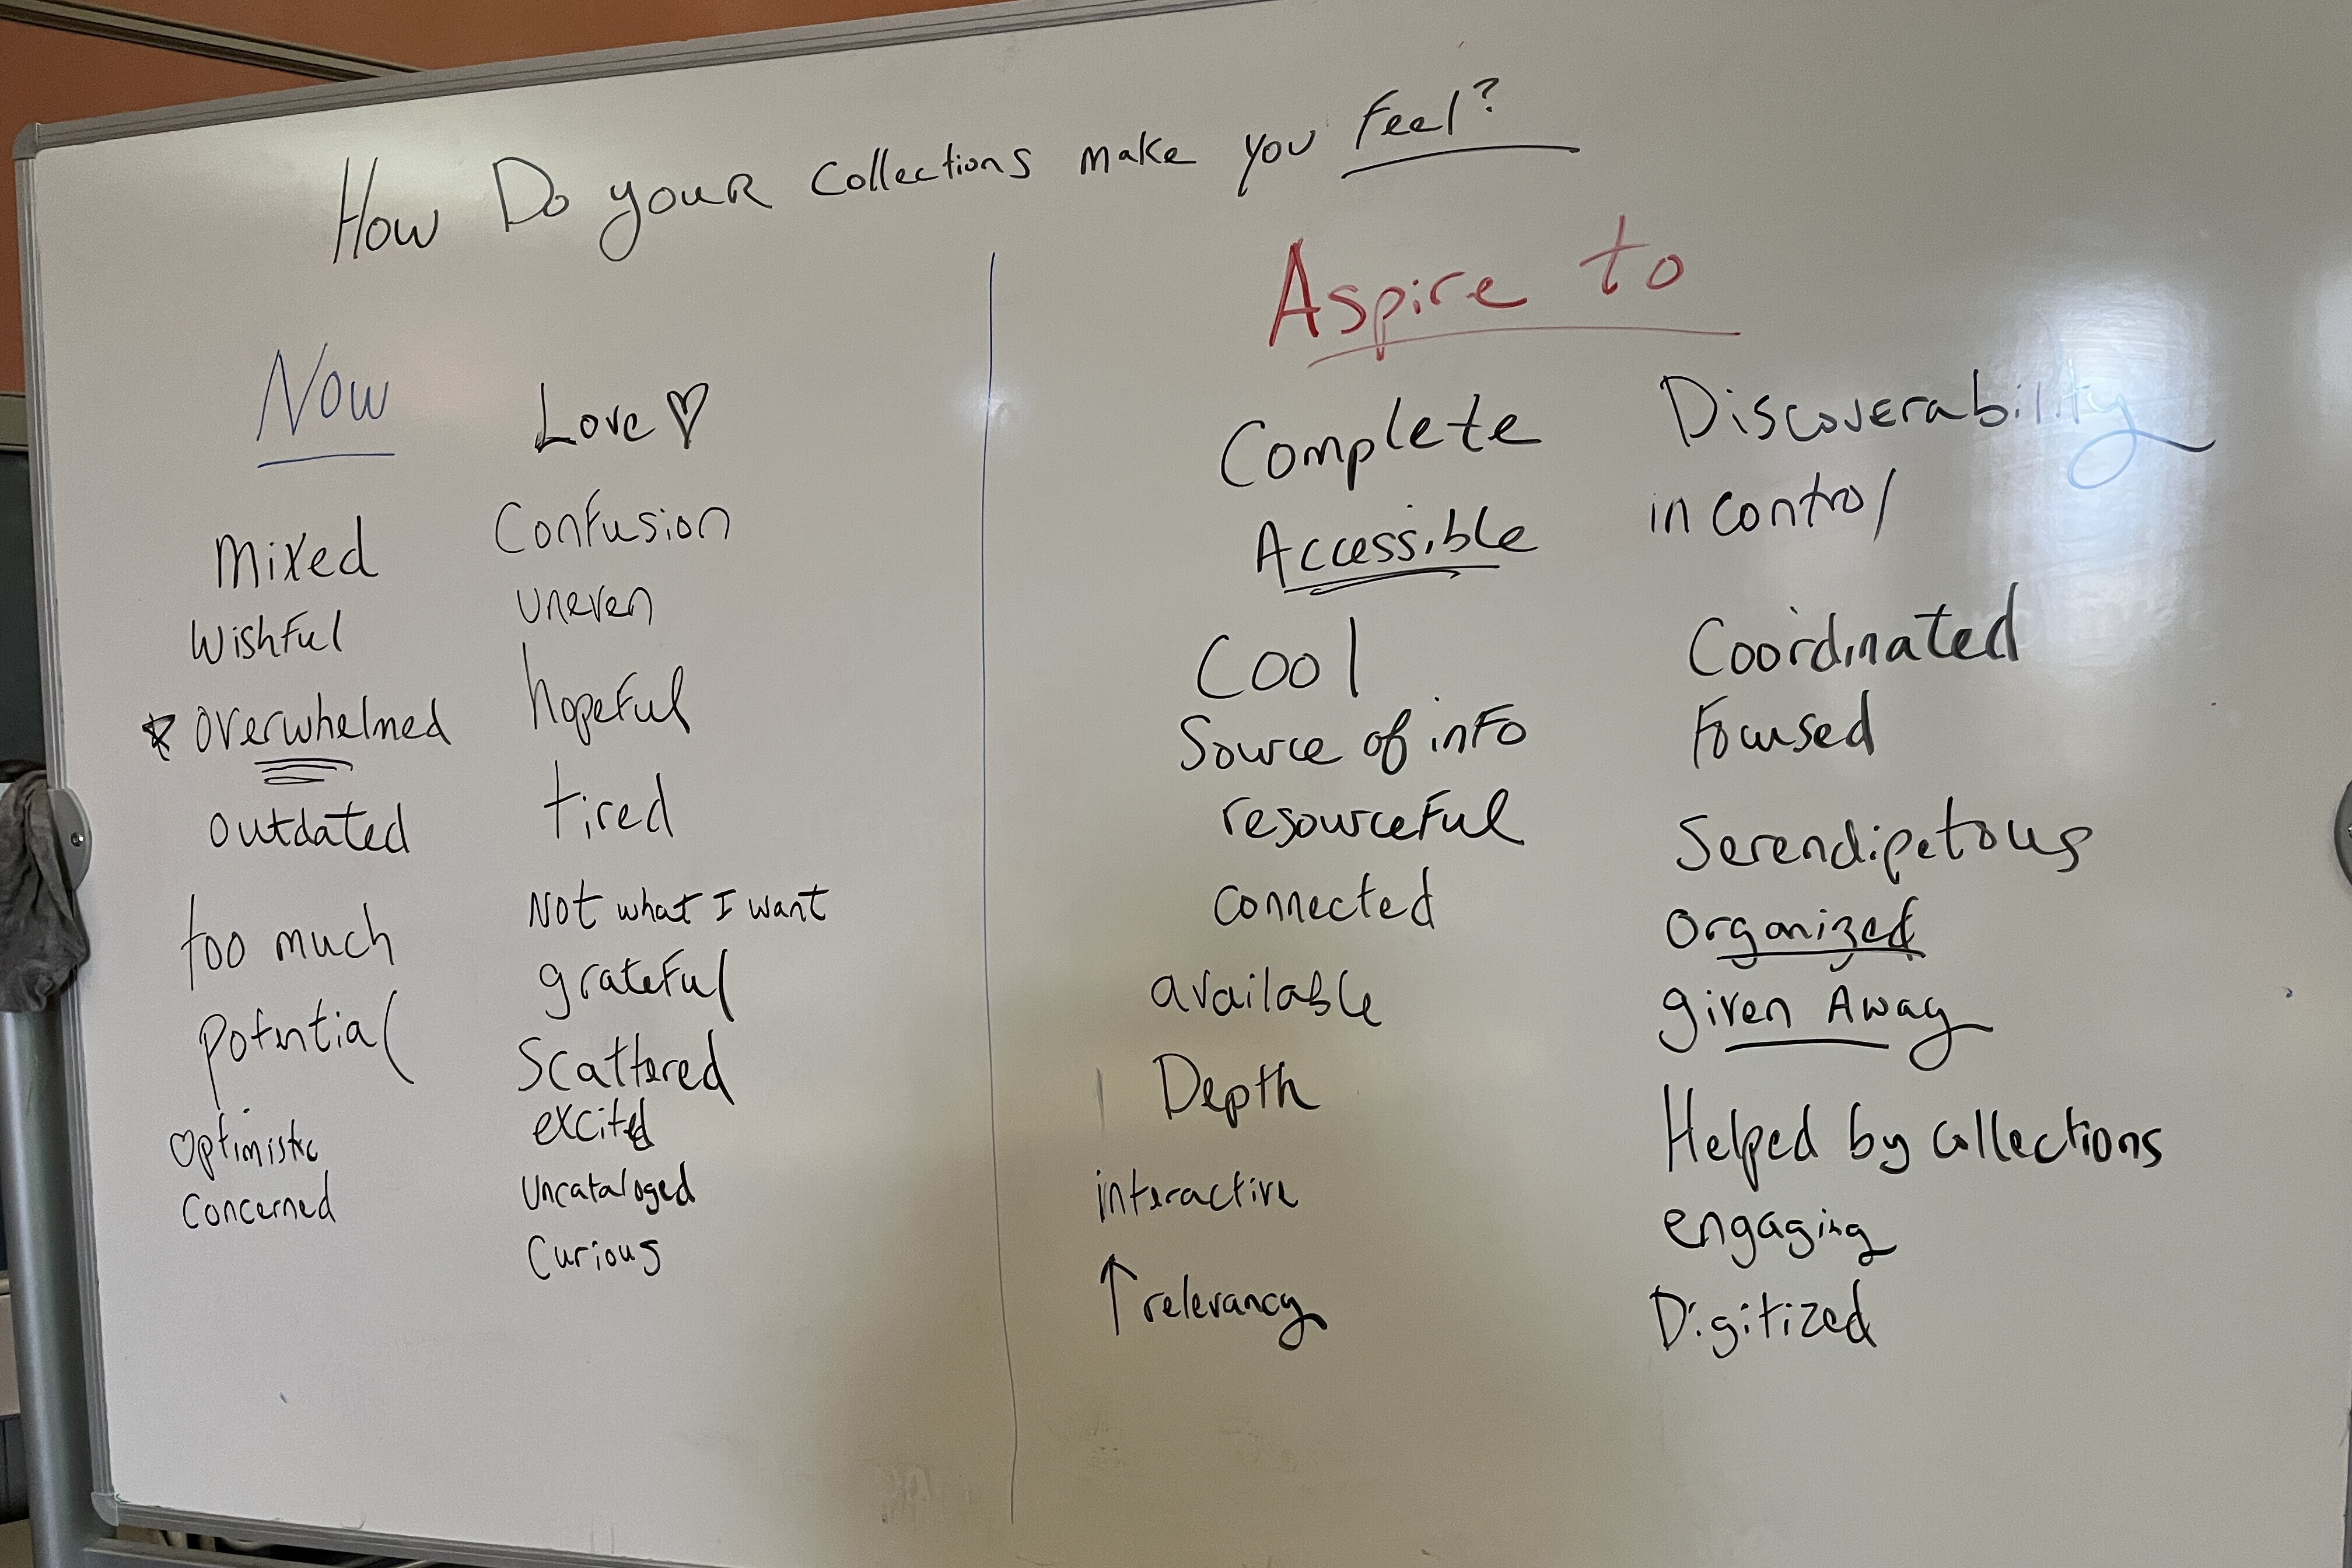 How Do your collections make you feel?
Now
Mixed
Wishful
overwhelmed
outdated
too much
potential
optimistic
concerned
Love ♡
Confusion
uneven
hopeful
tired
Not what I want
grateful
Scattered
excited
Uncataloged
Curious
Aspire to
Complete
Accessible
Cool
Source of info
resourceful
connected
available
Depth
interactive
↑ relevancy
Discoverability
in control
Coordinated
Focused
Serendipetous
Organized
given Away
Helped by collections
engaging
Digitized